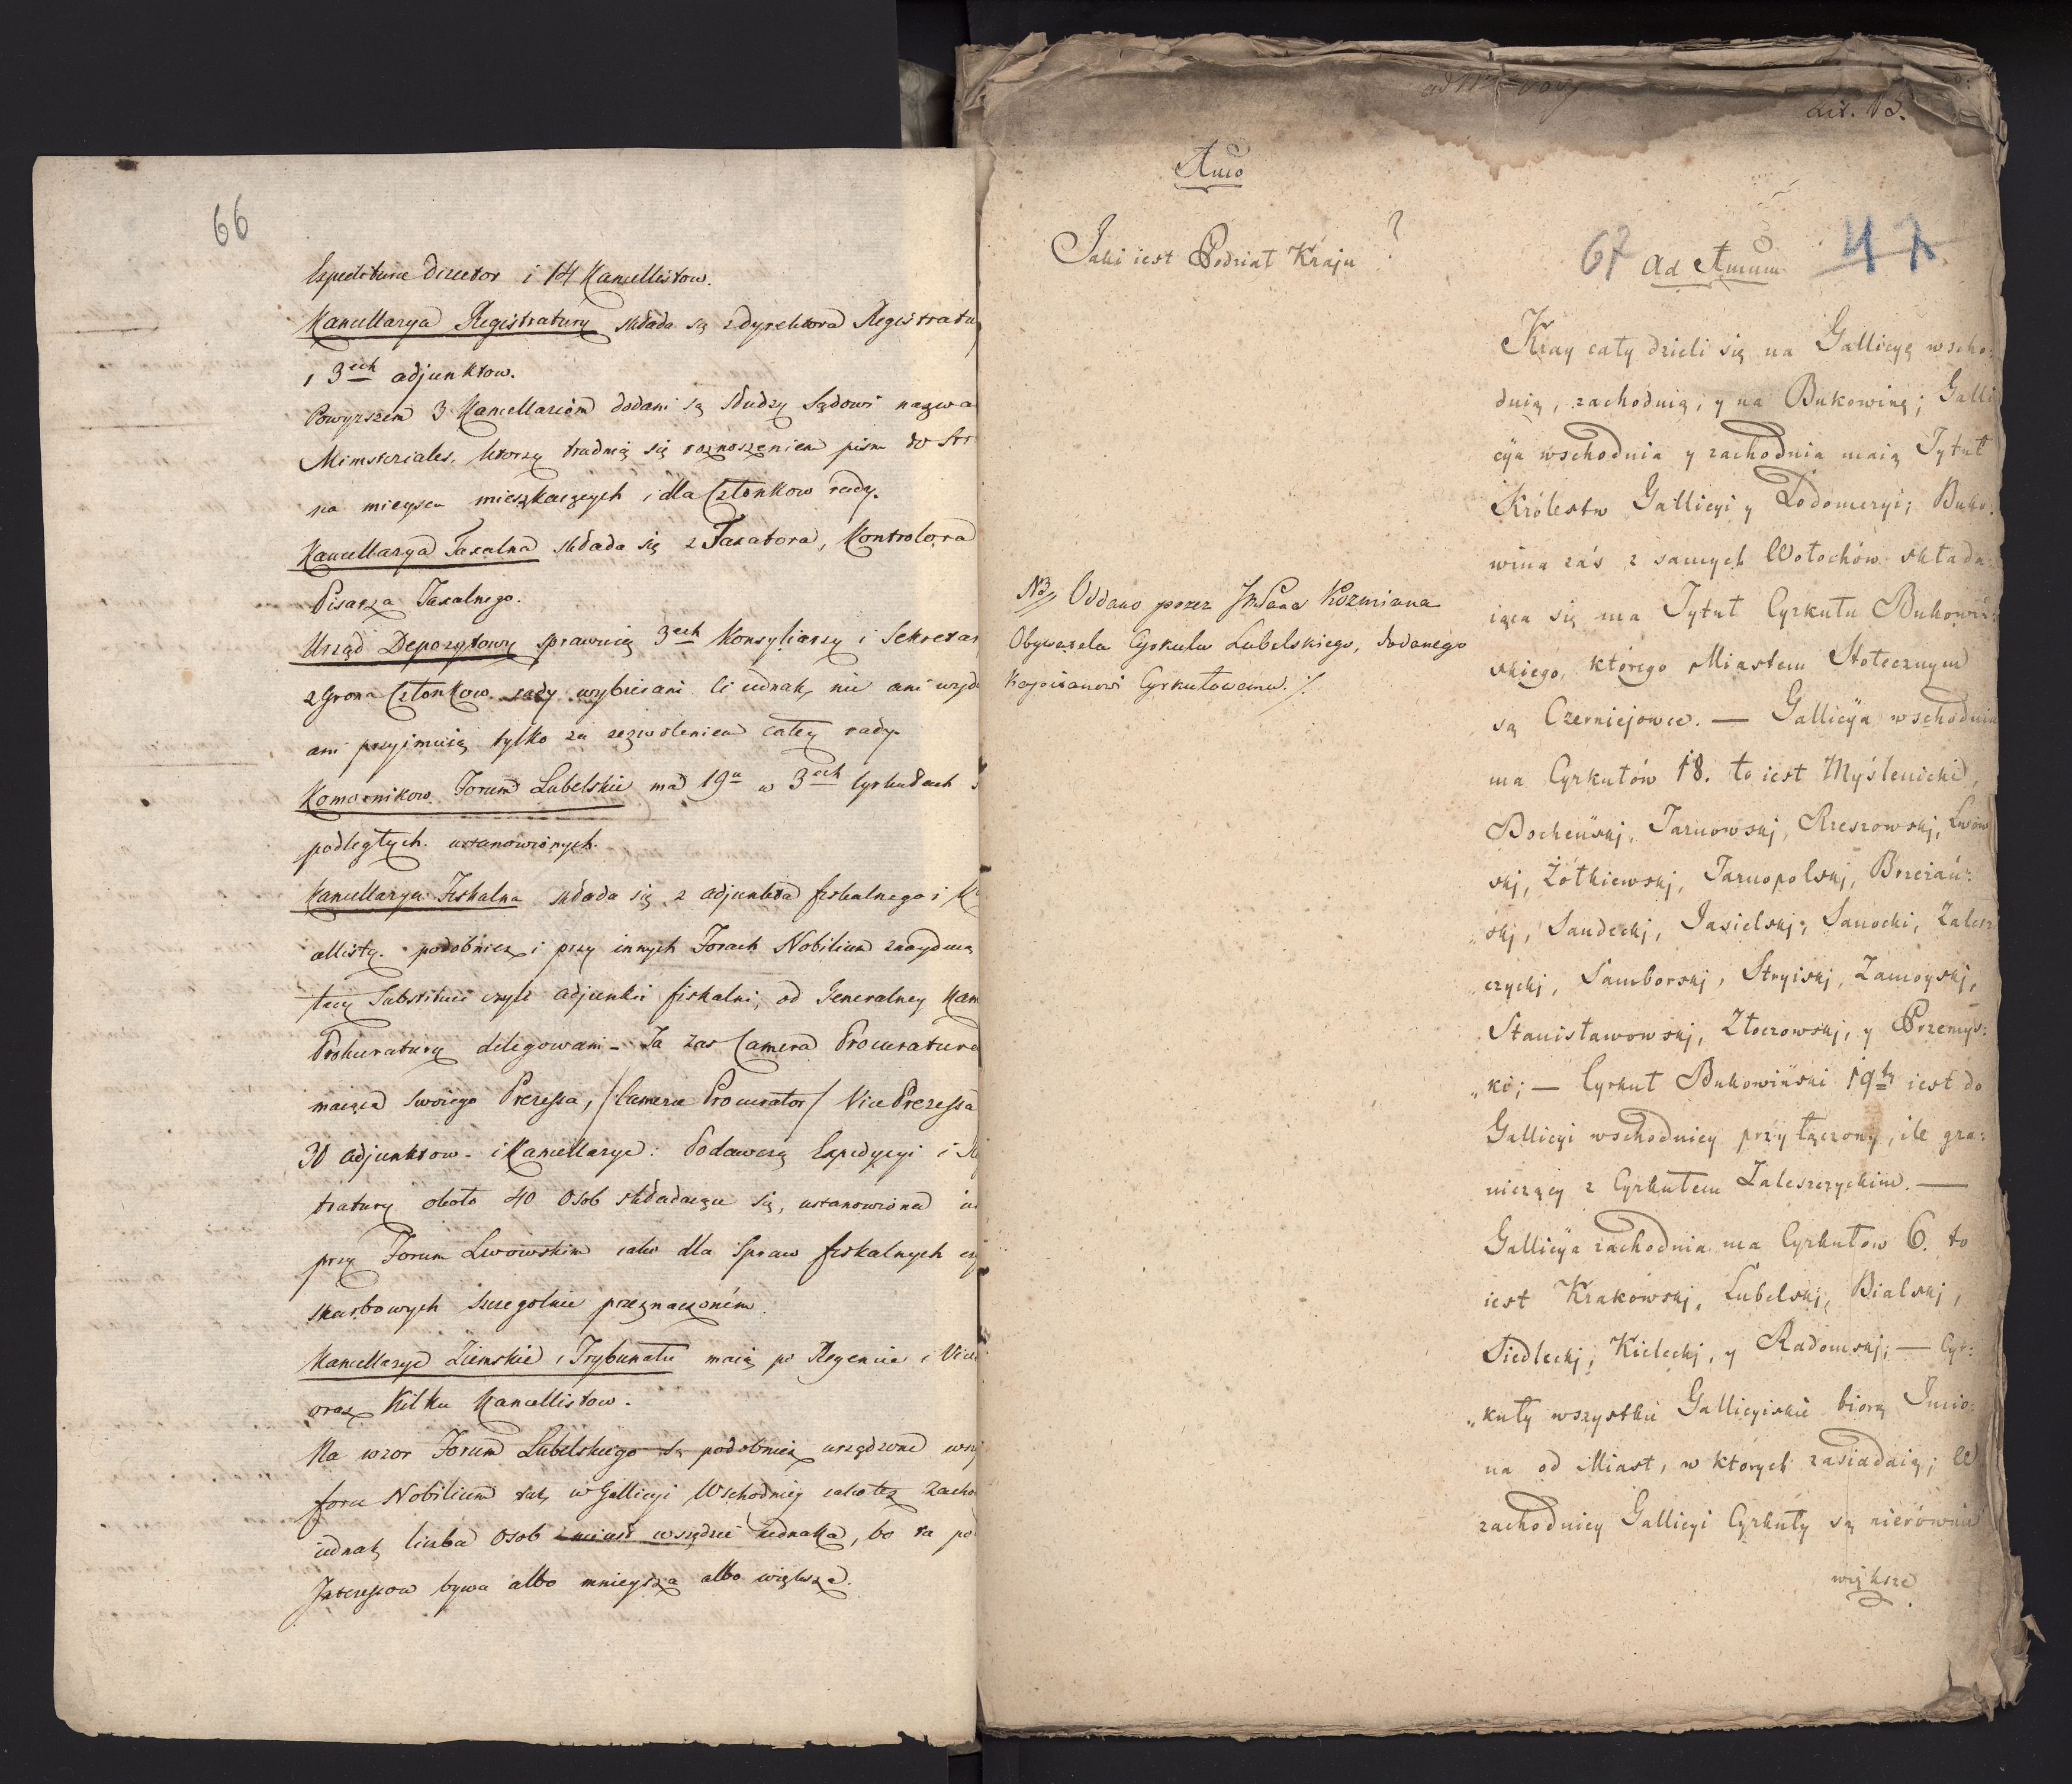 66
Expeditura Director i 14 Kancellistow.
Kancellarya Registratury składa się z dyrektora Registratu
i 3ech adjunktow.
Powyrszem 3 Kancellariom dodani są słudzy Sądowi nazwa
Ministeriales, ktorzy trudnią się roznoszeniem pism do Str
na mieyscu mieszkaiących i dla Członkow rady.
Kancellarya Taxalna składa się z Taxatora, Kontrolora
Pisarza Taxalnego.
Urząd Depozytowy sprawuią 3ech Konsyliarzy i Sekretar
z Grona Członkow rady wybierani. Ci iednak nie ani wyd
ani przyimuią tylko za zezwoleniem całey rady.
Komornikow Forum Lubelskie ma 19u w 3ech Cyrkułach
podległych ustanowionych.
Kancellarya Fiskalna składa się z adjunkta fiskalnego i K
allisty. podobniez i przy innych Forach Nobilium znayduią
tacy Substituci czyli adjunkci fiskalni, od Generalney Kam
Prokuratury delegowani - Ta zas Camera Procuratura
maiąca swoiego Prezessa, /Camerae Procurator/ Vice Prezessa
30 adjunktow - i Kancellarye: Podawczą Expedycyi i Re
tratury około 40 Osob składaiące się, ustanowiona ie
przy Forum Lwowskim iako dla Spraw fiskalnych cz
skarbowych szczegolnie przeznaczoném.
Kancellarye Ziemskie i Trybunału maią po Regencie i Vice
oraz Kilku Kancellistow.
Na wzor Forum Lubelskiego są podobniez urządzone wsz
fora Nobilium tak w Gallicyi Wschodniey iako tez Zacho
iednak liczba Osob wszędzie iednaka, bo ta po
Interessow bywa albo mnieysza albo większa.
Lit. B.
Amo
Jaki iest Podział Kraju?
67
Ad Amum
47.
Kray cały dzieli się na Gallicyą wscho:
dnią, zachodnią, y na Bukowinę; Galli
cya wschodnia y zachodnia maią Tytuł
Królestw Gallicyi y Lodomeryi; Buko:
wina zás z samych Wołochów składa:
iąca się ma Tytuł Cyrkułu Bukowiń:
skiego, którego Miastem Stołecznym
są Czerniejowce. — Gallicya wschodnia
ma Cyrkułów 18. to iest Myślenicki,
Bocheńskj, Tarnowskj, Rzeszowskj, Lwow
skj, Żółkiewskj, Tarnopolskj, Brzeżań:
„skj, Sandeckj, Jasielskj, Sanocki, Zalesz
„czyckj, Samborskj, Stryiskj, Zamoyskj,
Stanisławowskj, Złoczowskj, y Przemys:
„ki; — Cyrkuł Bukowiński 19ty iest do
Gallicyi wschodniey przyłączony, ile gra:
niczący z Cyrkułem Zaleszczyckim. —
Gallicya zachodnia ma Cyrkułow 6. to
iest Krakowskj, Lubelskj, Bialskj,
Siedleckj, Kieleckj, y Radomskj; — Cyr:
„kuły wszystkie Gallicyiskie biorą Imio:
na od Miast, w których zasiadaią; W
zachodniey Gallicyi Cyrkuły są nierównie
większe
NB Oddano przez JmPana Kozmiana
Obywatela Cyrkułu Lubelskiego, dodanego
Kapitanowi Cyrkułowemu. /.